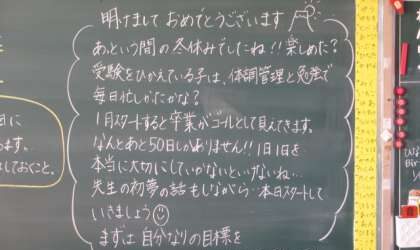 明けまして おめでとうございます
あという間の冬休みでしたね!!楽しめた?
受験をひかえている子は、体調管理と勉強で
毎日忙しかたかな?
1月スタートすると卒業がゴールとして見えてきます。
なんとあと50日しかありません!!1日1日を
本当に大切にしていかないといけないね…
先生の初夢の話もしながら…本日スタートして
いきましょう
まずは 自分なりの目標を
日に
ます。
しておくこと。